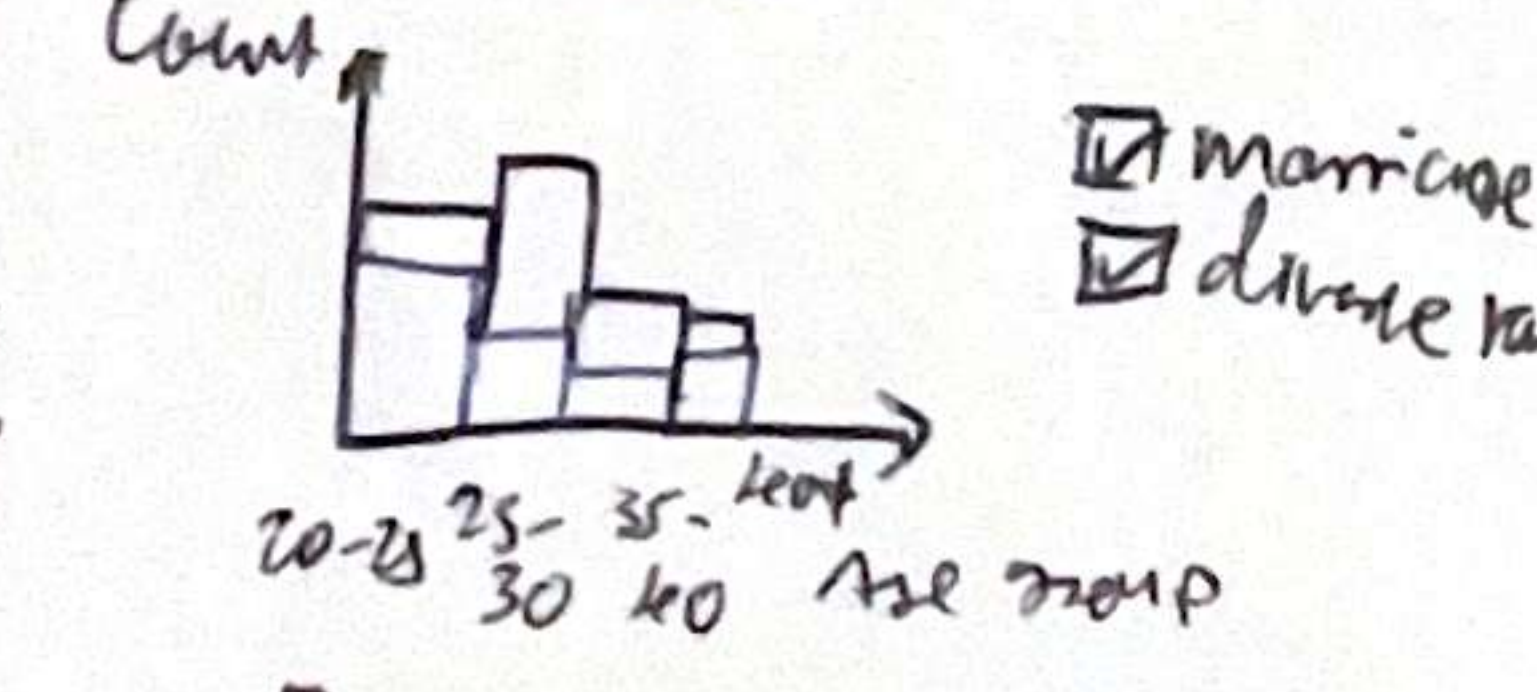 Count
marriage
divorce ra
20-25 25-30 35-40 40+
Age group